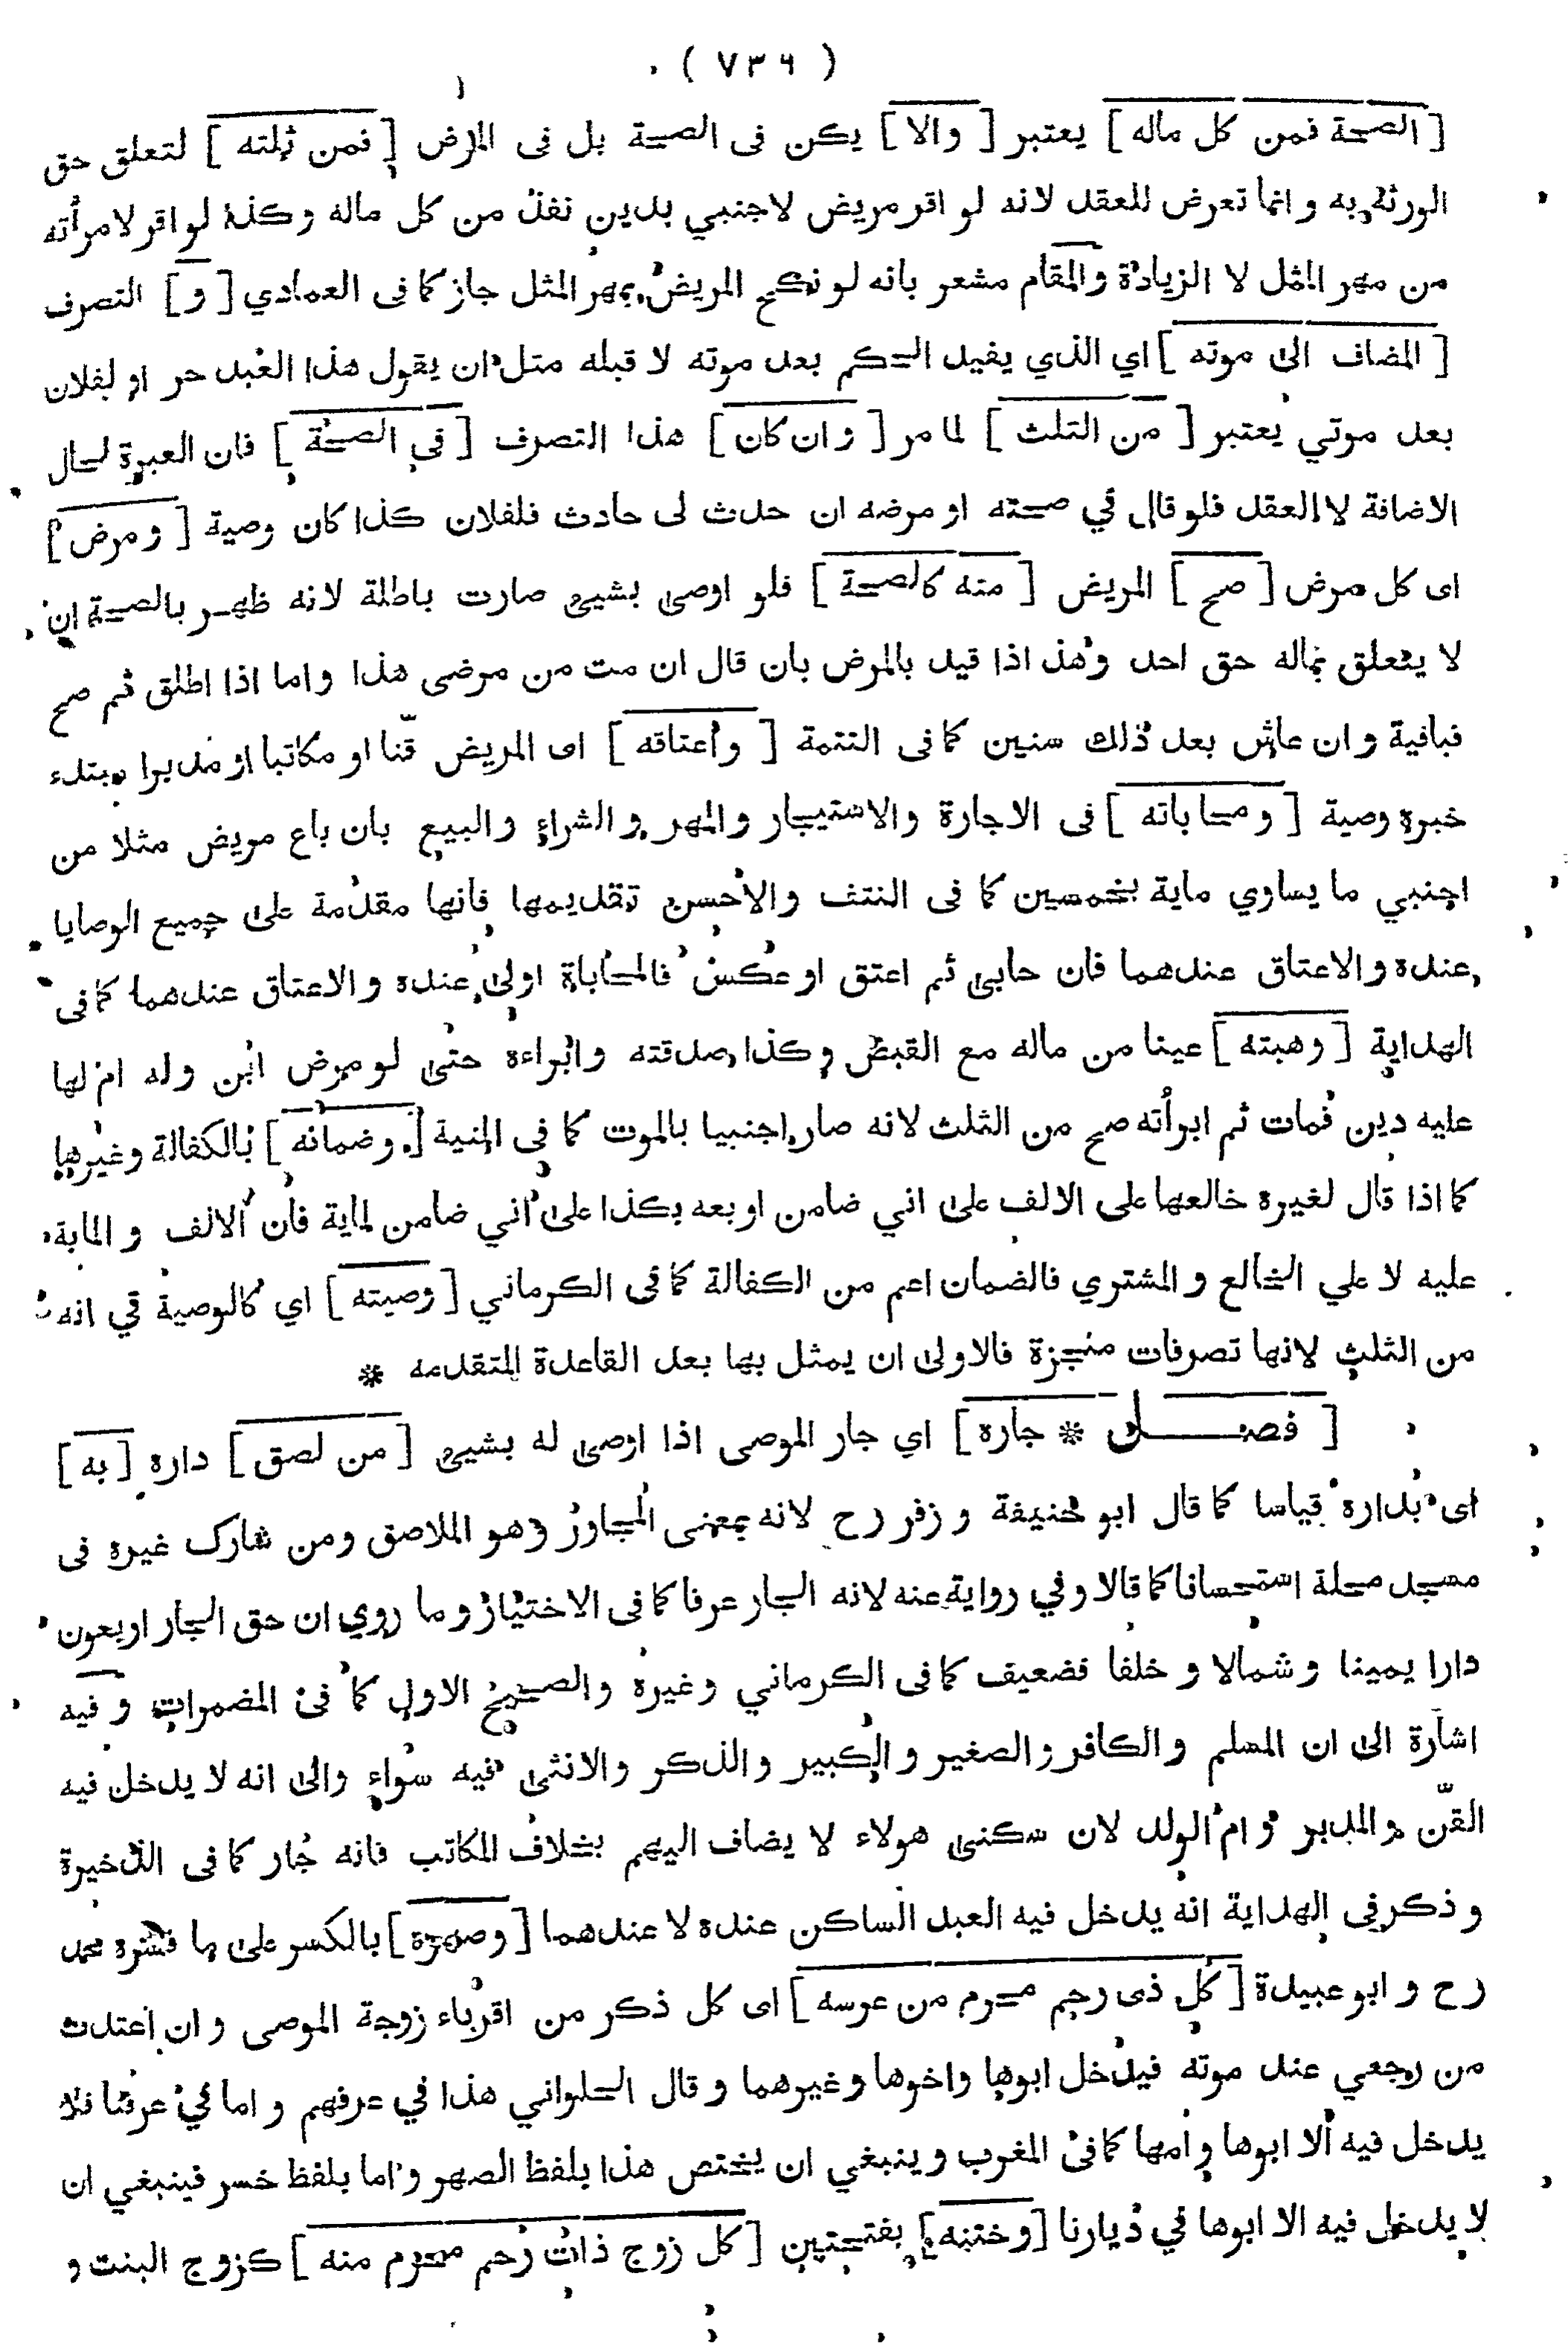 ( ٧٣٦ )
[ الصحة فمن كل ماله ] يعتبر [ والا ] يكن فى الصحة بل فى المرض [ فمن ثلثه ] لتعلق حق
الورثة به و انما تعرض للعقد لانه لو اقر مريض لاجنبي بدين نفذ من كل ماله و كذا لو اقر لامرأته
من مهر المثل لا الزيادة والمقام مشعر بانه لو نكح المريض بمهر المثل جاز كما فى العمادي [ و ] التصرف
[ المضاف الى موته ] اي الذي يفيد الحكم بعد موته لا قبله مثل ان يقول هذا العبد حر او لفلان
بعد موتي يعتبر [ من الثلث ] لما مر [ و ان كان ] هذا التصرف [ في الصحة ] فان العبرة لحال
الاضافة لا العقد فلو قال في صحته او مرضه ان حدث لى حادث فلفلان كذا كان وصية [ و مرض ]
اى كل مرض [ صح ] المريض [ منه كالصحة ] فلو اوصى بشيئ صارت باطلة لانه ظهر بالصحة ان
لا يتعلق بماله حق احد وهذ اذا قيد بالمرض بان قال ان مت من مرضى هذا و اما اذا اطلق ثم صح
فباقية و ان عاش بعد ذلك سنين كما فى التتمة [ و اعتاقه ] اى المريض قنّا او مكاتبا او مدبرا مبتدء
خبره وصية [ و محاباته ] فى الاجارة والاستيجار والمهر و الشراء و البيع بان باع مريض مثلا من
اجنبي ما يساوي ماية بخمسين كما فى النتف والاحسن تقديمها فانها مقدمة على جميع الوصايا
عنده و الاعتاق عندهما فان حابى ثم اعتق او عكس فالمحاباة اولى عنده و الاعتاق عندهما كما فى
الهداية [ و هبته ] عينا من ماله مع القبض و كذا صدقته وابراءه حتى لو مرض ابن وله ام لها
عليه دين فمات ثم ابرأته صح من الثلث لانه صار اجنبيا بالموت كما فى المنية [ و ضمانه ] بالكفالة وغيرها
كما اذا قال لغيره خالعها على الالف على اني ضامن او بعه بكذا على اني ضامن لماية فان الالف و الماية
عليه لا علي الخالع و المشتري فالضمان اعم من الكفالة كما فى الكرماني [ وصيته ] اي كالوصية في انه
من الثلث لانها تصرفات منجزة فالاولى ان يمثل بها بعد القاعدة المتقدمه *
[ فصل * جاره ] اي جار الموصى اذا اوصى له بشيئ [ من لصق ] داره [ به ]
اى بداره قياسا كما قال ابو حنيفة و زفر رح لانه بمعنى المجاور وهو الملاصق و من شارك غيره فى
مسجد محلة استحسانا كما قالا و في رواية عنه لانه الجار عرفا كما فى الاختيار و ما روي ان حق الجار اربعون
دارا يمينا و شمالا و خلفا فضعيف كما فى الكرماني وغيره والصحيح الاول كما فى المضمرات و فيه
اشارة الى ان المسلم و الكافر و الصغير و الكبير و الذكر و الانثى فيه سواء والى انه لا يدخل فيه
القنّ و المدبر و ام الولد لان سكنى هولاء لا يضاف اليهم بخلاف المكاتب فانه جار كما فى الذخيرة
و ذكر في الهداية انه يدخل فيه العبد الساكن عنده لا عندهما [ و صهره ] بالكسر على ما فسره محمد
رح و ابو عبيدة [ كل ذى رحم محرم من عرسه ] اى كل ذكر من اقرباء زوجة الموصى و ان اعتدت
من رجعي عند موته فيدخل ابوها واخوها وغيرهما و قال الحلواني هذا في عرفهم و اما في عرفنا فلا
يدخل فيه الا ابوها و امها كما فى المغرب و ينبغي ان يختص هذا بلفظ الصهر و اما بلفظ خسر فينبغي ان
لا يدخل فيه الا ابوها في ديارنا [ و ختنه ] بفتحتين [ كل زوج ذات رحم محرم منه ] كزوج البنت و